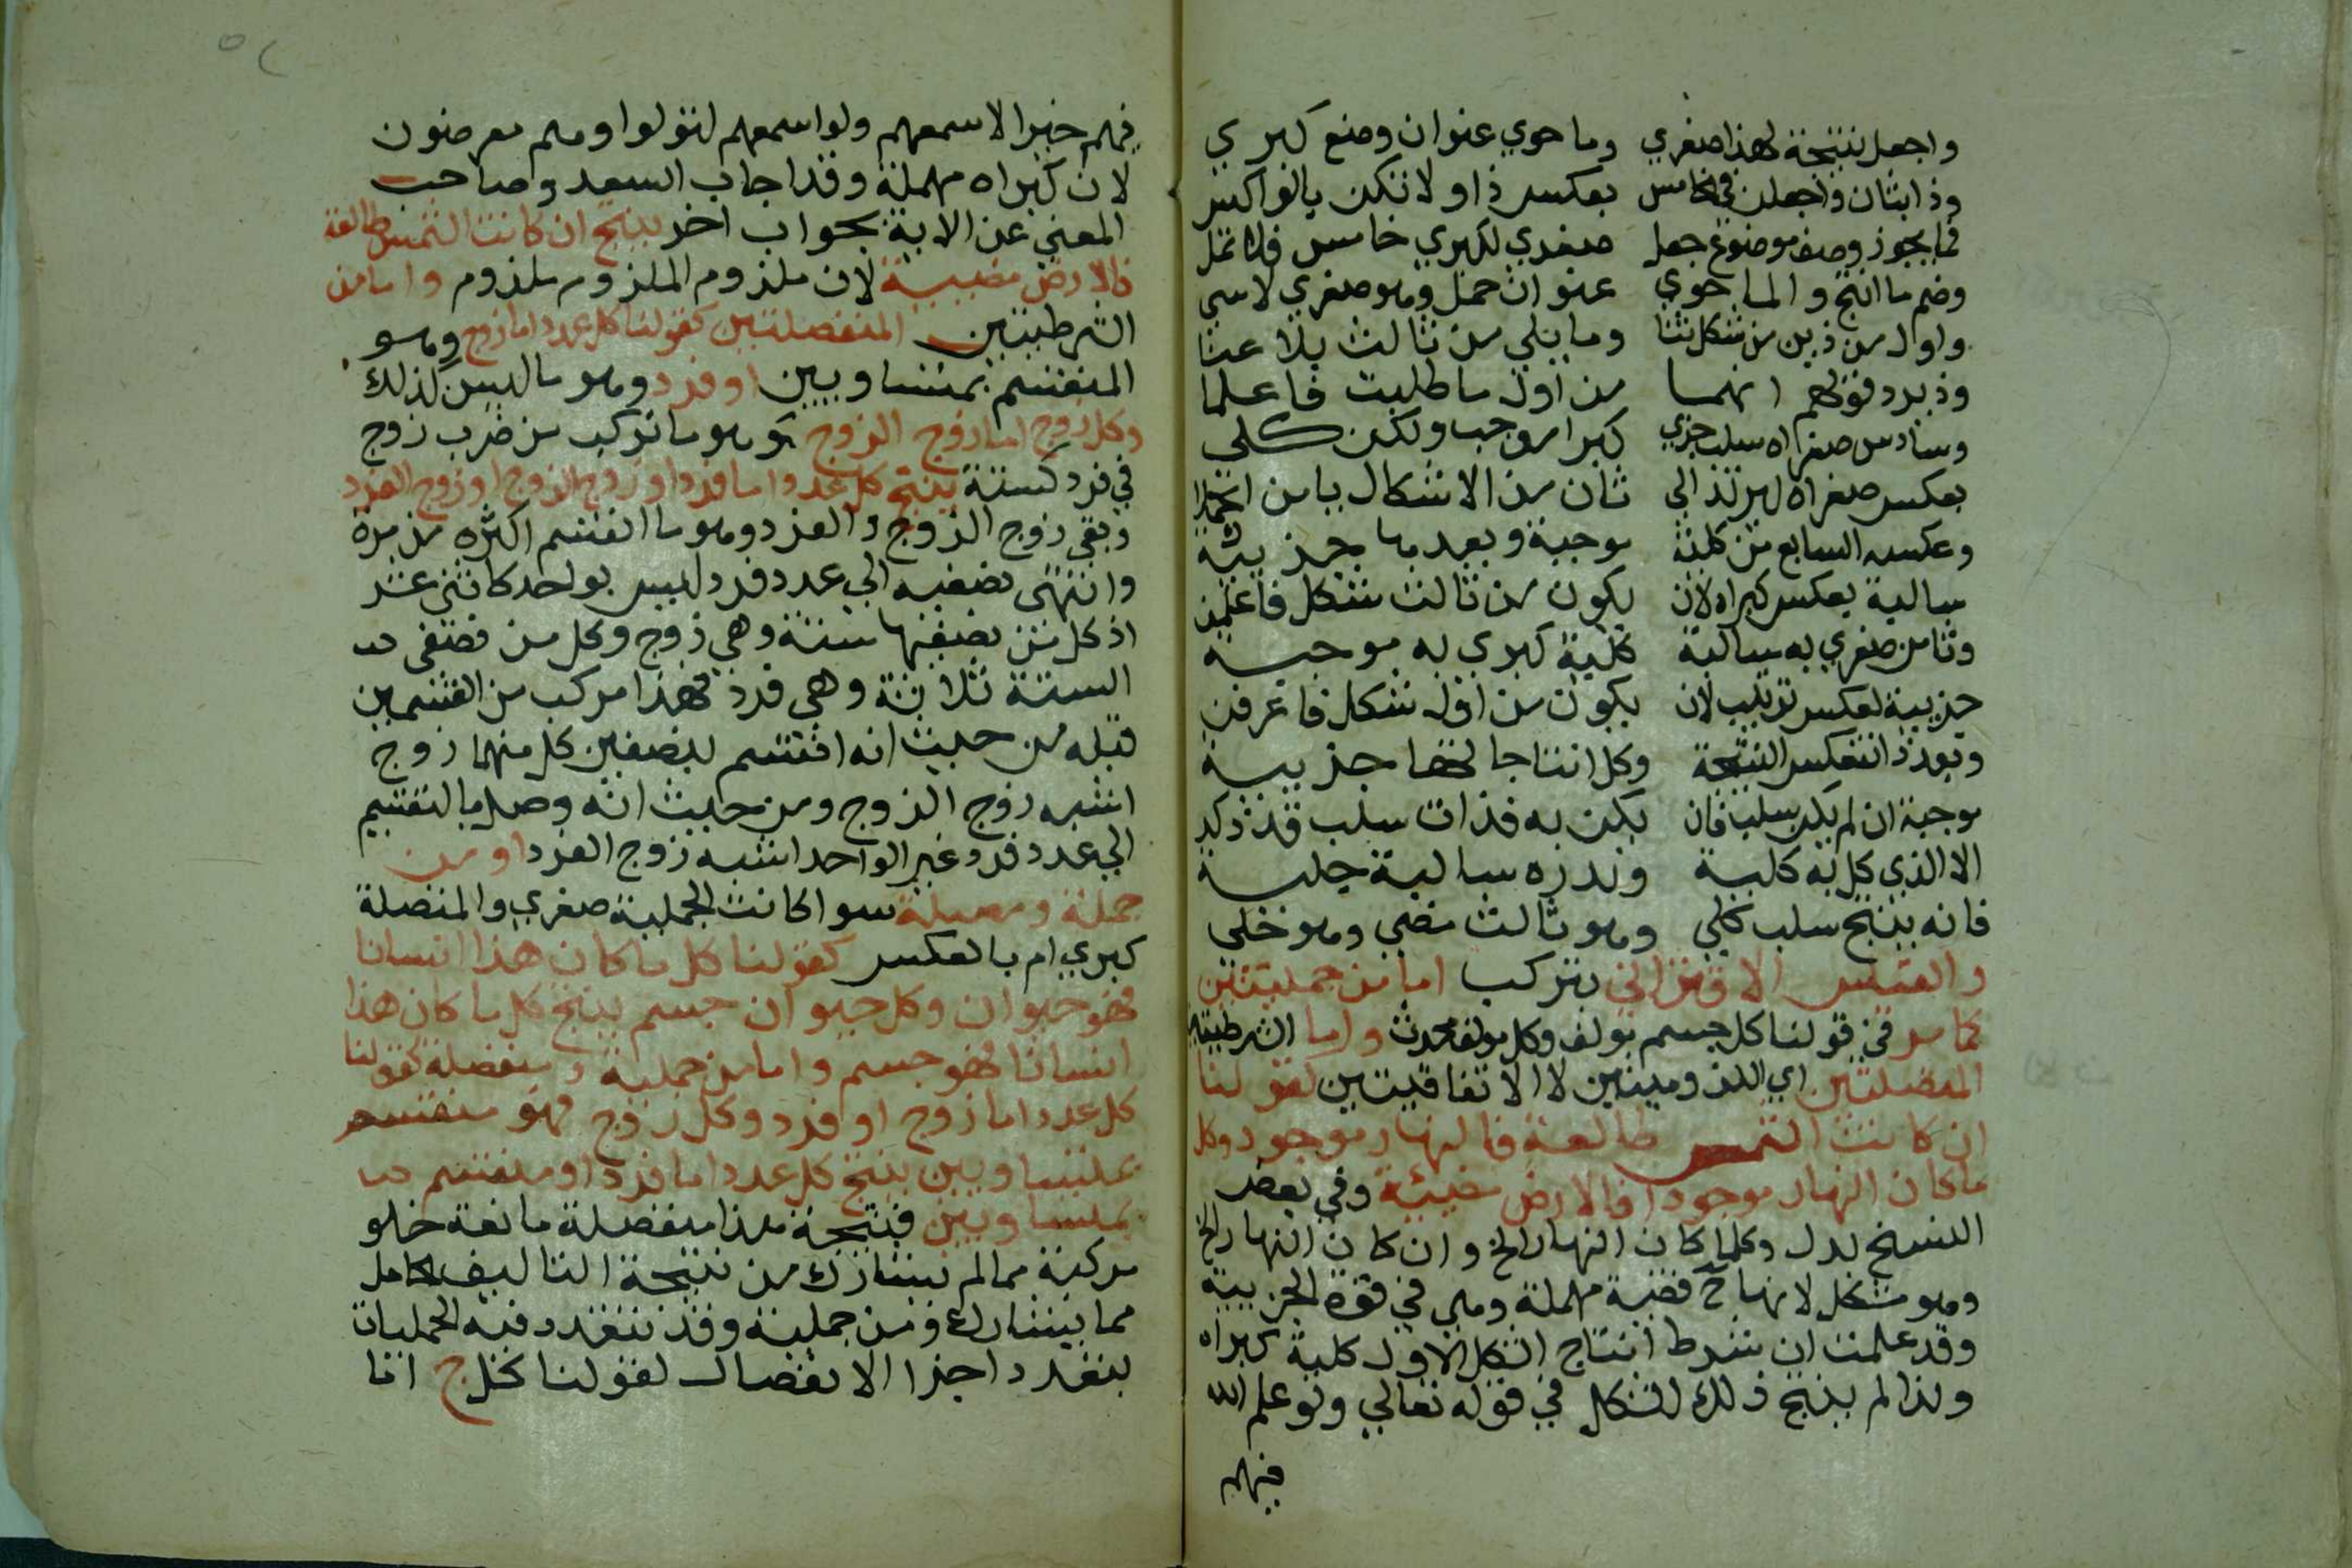 واجعل نتيجة لهذا صغري وما حوي عنوان وضع كبري
وذا بثان واجعلن في خامس بعكس ذا ولا تكن بالواكس
فما يجوز وصف موضوع جعل صغري لكبري خامس فلا تمل
وضم ما انتج والما حوي عنوان حمل وهو صغري لا سي
واول من ذين من شكل ثنا وما يلي من ثالث بلا عنا
وذ يرد قولهم انهما من اول ما طلبت فاعلما
وسادس صغراه سلب جزي كبرا موجب ولكن كلي
بعكس صغراه ليرتد الي ثان من الاشكال يا من
وعكسه السابع من كلية موجبة وبعدها جزيية
سالبة بعكس كبراه لان يكون من ثالث شكل فاعلمن
وثامن صغري به سالبة كلية كبري به موجبة
جزيية لعكس ترتيب لان يكون من اول شكل فاعرفن
وبعد ذا تنعكس النتيجة وكل انتاجا لها جزيية
موجبة ان لم يكن سلب فان يكن به فذات سلب قد زكن
الا الذي كل به كلية وندره سالبة جلية
فانه ينتج سلب كلي وهو ثالث مضي وهو خلي
والقياس الاقتراني يتركب اما من حمليتين
كما مر في قولنا كل جسم مولف وكل مولف محدث واما الشرطيتين
المتصلتين اي اللزوميتين لا الاتفاقيتين لقولنا
ان كانت الشمس طالعة فالنهار موجود وكل
ما كان النهار موجودا فالارض مضيئة وفي بعض
النسخ بدل وكلما كان النهار الخ وان كان النهار الخ
وهو مشكل لانها ح قضية مهملة وهي في قوة الجزيية
وقد علمت ان شرط انتاج الشكل الاول كلية كبراه
ولذا لم ينتج ذلك الشكل في قوله تعالي ولو علم الله
فيهم
فيهم خيرا لاسمعهم ولو اسمعهم لتولوا وهم معرضون
لان كبراه مهملة وقد اجاب السعد وصاحب
المغني عن الاية بجواب اخر ينتج ان كانت الشمس طالعة
فالارض مضيية لان ملزوم الملزوم ملزوم واما من
الشرطيتين المنفصلتين كقولنا كل عدد اما زوج وهو
المنقسم بمتساويين او فرد وهو ما ليس لذلك
وكل زوج اما زوج الزوج وهو ما تركب من ضرب زوج
في فرد كستة ينتج كل عدد اما فرد او زوج الزوج او زوج الفرد
وبقي زوج الزوج والفرد وهو ما انقسم اكثره من مرة
وانتهى نصفيه الي عدد فرد ليس بواحد كاثني عشر
اذ كل من نصفيها ستة وهي زوج وكل من نصفي
الستة ثلاثة وهي فرد فهذا مركب من القسمين
قبله من حيث انه انقسم لنصفين كل منهما زوج
اشبه زوج الزوج ومن حيث انه وصل بالتقسيم
الي عدد فرد غير الواحد اشبه زوج الفرد او من
حملية ومتصلة سوا كانت الحملية صغري والمتصلة
كبري ام بالعكس كقولنا كل ما كان هذا انسانا
فهو حيوان وكل حيوان جسم ينتج كل ما كان هذا
انسانا فهو جسم واما من حملية ومنفصلة كقولنا
كل عدد اما زوج او فرد وكل زوج فهو منقسم
بمتساويين ينتج كل عدد اما فرد او منقسم
بمتساويين فنتيجة هذا منفصلة مانعة خلو
مركبة مما لم يتشارك من نتيجة التاليف الحامل
مما يتشارك ومن حملية وقد تتعدد فيه الحمليات
بتعدد اجزا الانفصال لقولنا كل ج اما